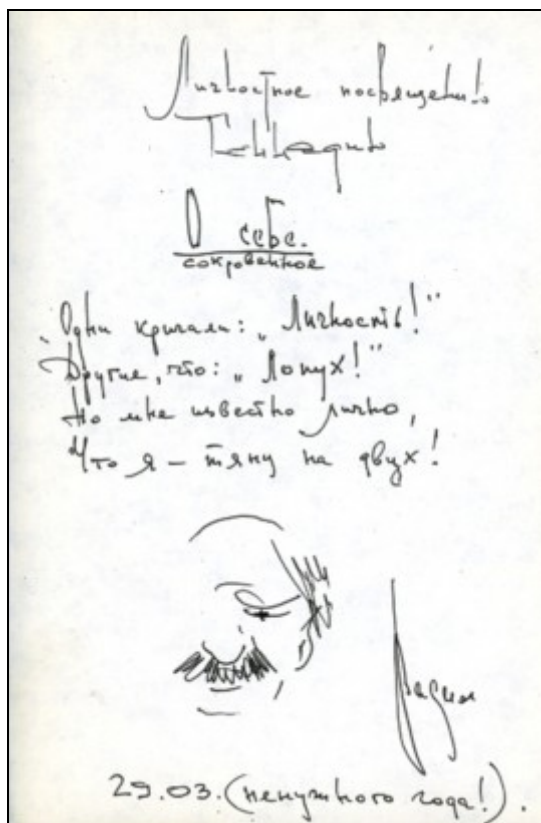 Личностное посвящение
О себе.
сокровенное
"Одни кричали: „Личность!"
Другие, что: „Лопух!"
Но мне известно лично,
Что я – тяну на двух!
Вадим
29.03. (ненужного года!).